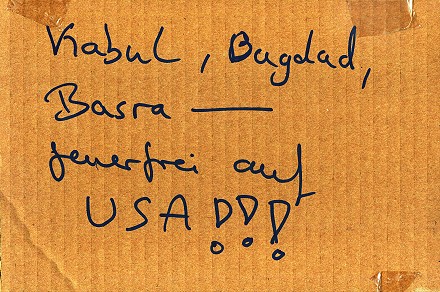 Kabul, Bagdad,
Basra —
feuerfrei auf
USA!!!